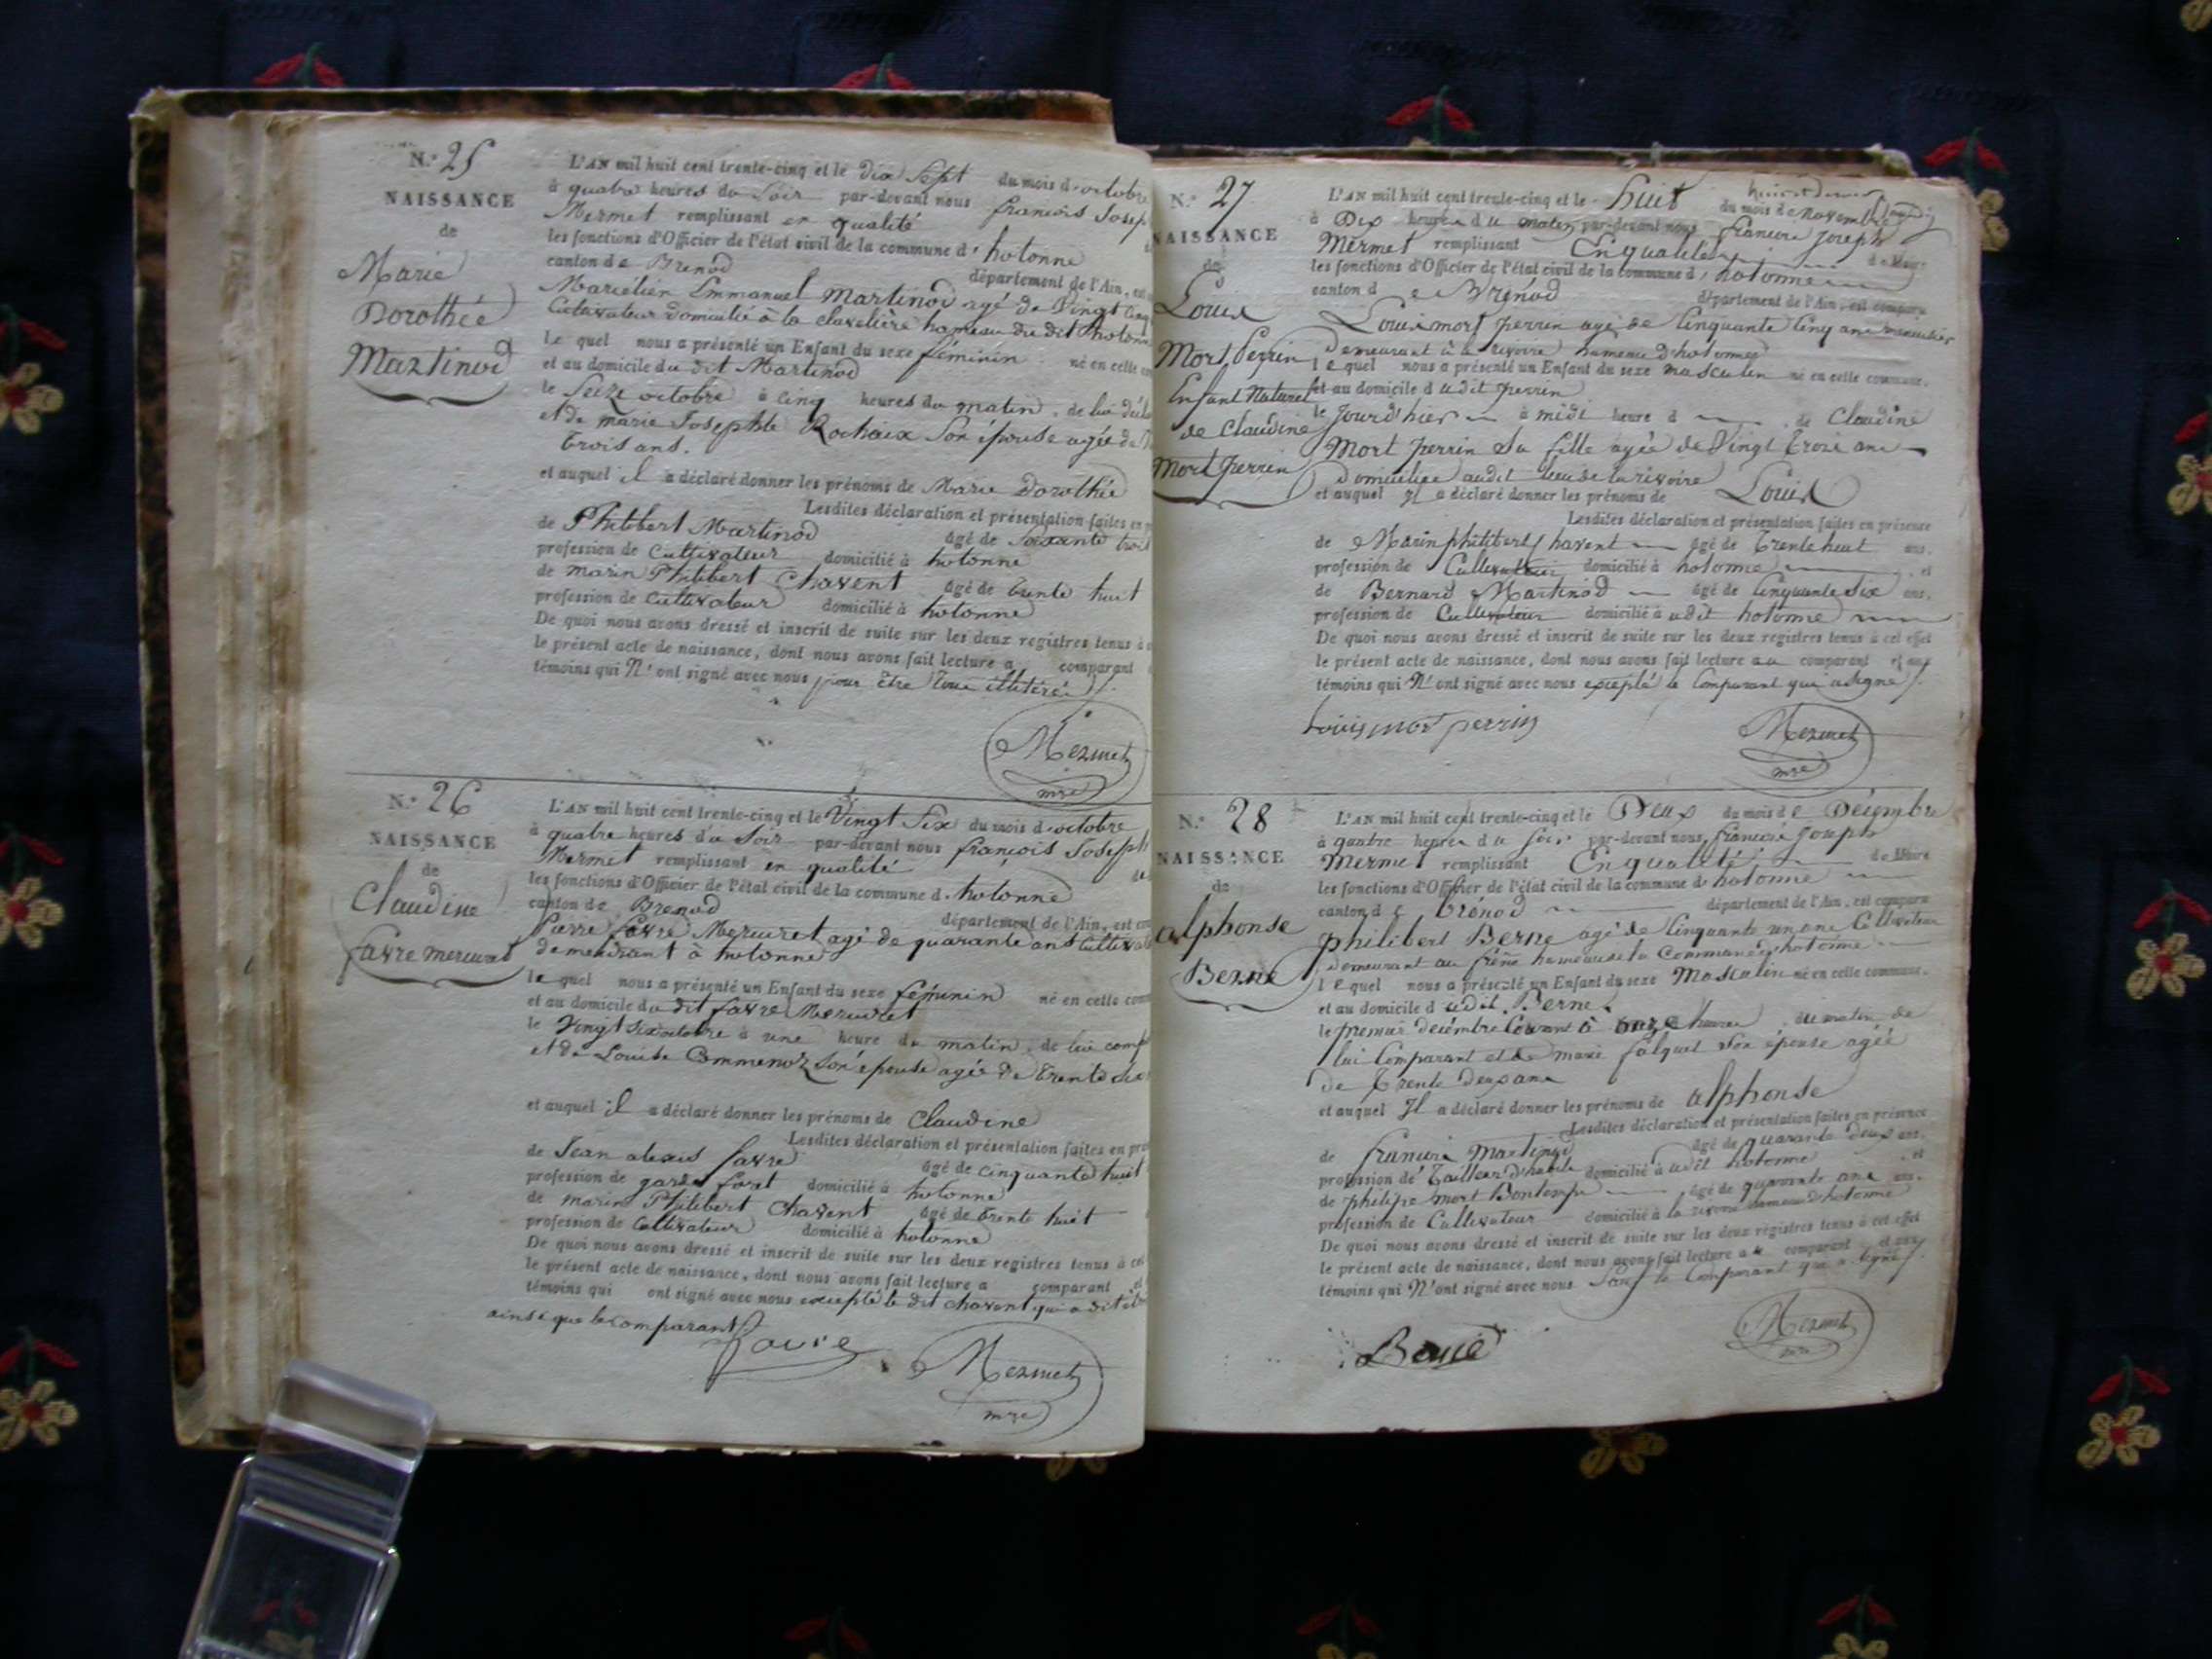 N.° 25
NAISSANCE
de
Marie
Dorothée
Martinod
L'AN mil huit cent trente-cinq et le dix Sept du mois d'octobre
à quatre heures du Soir par-devant nous francois Josep
Mermet remplissant en qualité
les fonctions d'Officier de l'état civil de la commune d'hotonne
canton de Brenod département de l'Ain, est
Emmanuel Martinod agé de Vingt cinq
Cultivateur domicilié à la clavelière hameau du dit hotonne
le quel nous a présenté un Enfant du sexe féminin né en cette
et au domicile du dit Martinod
le Seize octobre à cinq heures du matin, de lui
et de marie Josephte Rochaix Son épouse agée de
trois ans.
et auquel il a déclaré donner les prénoms de Marie Dorothée
Lesdites déclaration et présentation faites en
de Philibert Martinod âgé de Soixante trois
profession de Cultivateur domicilié à hotonne
de marin Philibert Chavent âgé de trente huit
profession de Cultivateur domicilié à hotonne
De quoi nous avons dressé et inscrit de suite sur les deux registres tenus à
le présent acte de naissance, dont nous avons fait lecture a comparant
témoins qui N'ont signé avec nous pour être tous illitérés
Mermet
mre
N.° 26
NAISSANCE
de
Claudine
favre mercuret
L'AN mil huit cent trente-cinq et le Vingt Six du mois d'octobre
à quatre heures du Soir par-devant nous francois Joseph
Mermet remplissant en qualité de
les fonctions d'Officier de l'état civil de la commune d'hotonne
canton de Brenod département de l'Ain, est
Pierre favre Mercuret agé de quarante ans
demeurant à hotonne
le quel nous a présenté un Enfant du sexe féminin né en cette
et au domicile du dit favre Mercuret
le Vingt Six octobre à une heure du matin, de lui
et de Louise Commenoz Son épouse agée de trente
et auquel il a déclaré donner les prénoms de Claudine
Lesdites déclaration et présentation faites en
de Jean alexis favre âgé de cinquante huit
profession de garde foret domicilié à hotonne
de marin Philibert Chavent âgé de trente huit
profession de Cultivateur domicilié à hotonne
De quoi nous avons dressé et inscrit de suite sur les deux registres tenus à
le présent acte de naissance, dont nous avons fait lecture a comparant
témoins qui ont signé avec nous excepté le dit chavent qui a dit
ainsi que le comparant
favre
Mermet
mre
N.° 27
NAISSANCE
de
Louis
Mort Perrin
Enfant Naturel
de Claudine
Mort Perrin
L'AN mil huit cent trente-cinq et le huit du mois de novembre
à Dix heures du matin par-devant nous francois joseph
Mermet remplissant En qualité de Maire
les fonctions d'Officier de l'état civil de la commune d'hotonne
canton de Brénod département de l'Ain, est comparu
Louis mort perrin agé de Cinquante Cinq ans
Demeurant à la rivoire hameau d'hotonne
lequel nous a présenté un Enfant du sexe masculin né en cette commune,
et au domicile dudit perrin
le jour d'hier à midi heure d de Claudine
Mort perrin Sa fille agée de Vingt Trois ans
Domiciliée audit lieu de la rivoire
et auquel Il a déclaré donner les prénoms de Louis
Lesdites déclaration et présentation faites en présence
de Marin philibert Chavent âgé de Trente huit ans,
profession de Cultivateur domicilié à hotonne et
de Bernard Martinod âgé de Cinquante Six ans,
profession de Cultivateur domicilié à udit hotonne
De quoi nous avons dressé et inscrit de suite sur les deux registres tenus à cet effet
le présent acte de naissance, dont nous avons fait lecture au comparant et aux
témoins qui N'ont signé avec nous excepté le Comparant qui a signé
Louis mort perrin
Mermet
mre
N.° 28
NAISSANCE
de
alphonse
Berne
L'AN mil huit cent trente-cinq et le Deux du mois de Décembre
à quatre heures du Soir par-devant nous francois joseph
Mermet remplissant En qualité de Maire
les fonctions d'Officier de l'état civil de la commune d'hotonne
canton de brénod département de l'Ain, est comparu
philibert Berne agé de Cinquante un ans Cultivateur
demeurant au hameau de la Commune d'hotonne
lequel nous a présenté un Enfant du sexe Masculin né en cette commune,
et au domicile dudit Berne
le premier décembre Courant à onze heures du matin de
lui Comparant et de marie falquet Son épouse agée
de Trente deux ans
et auquel Il a déclaré donner les prénoms de alphonse
Lesdites déclaration et présentation faites en présence
de francois Martinod âgé de quarante deux ans,
profession de Tailleur d'habits domicilié à udit hotonne et
de philipe mort Bontemps âgé de quarante ans ans,
profession de Cultivateur domicilié à la rivoire hameau d'hotonne
De quoi nous avons dressé et inscrit de suite sur les deux registres tenus à cet effet
le présent acte de naissance, dont nous avons fait lecture au comparant et aux
témoins qui N'ont signé avec nous Sauf le Comparant qui a signé
Berne
Mermet
mre